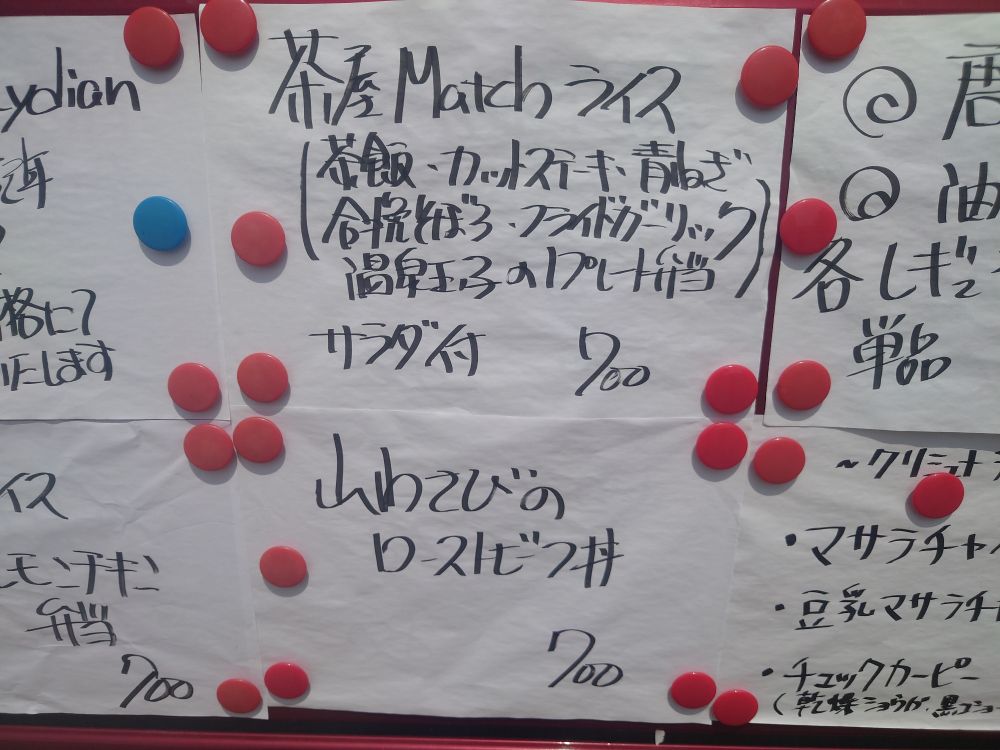 Lydian
格にて
にします
茶屋Matchライス
(茶飯・カットステーキ・青ねぎ
合挽そぼろ・フライドガーリック
温泉玉子の1プレート弁当)
サラダ付 700
@ 唐
@ 油
各しぎ
単品
イス
レモンチキン
弁当
700
山わさびの
ローストビーフ丼
700
・マサラチャ
・豆乳マサラチャ
・チュックカーピー
(乾燥ショウガ、黒コショー